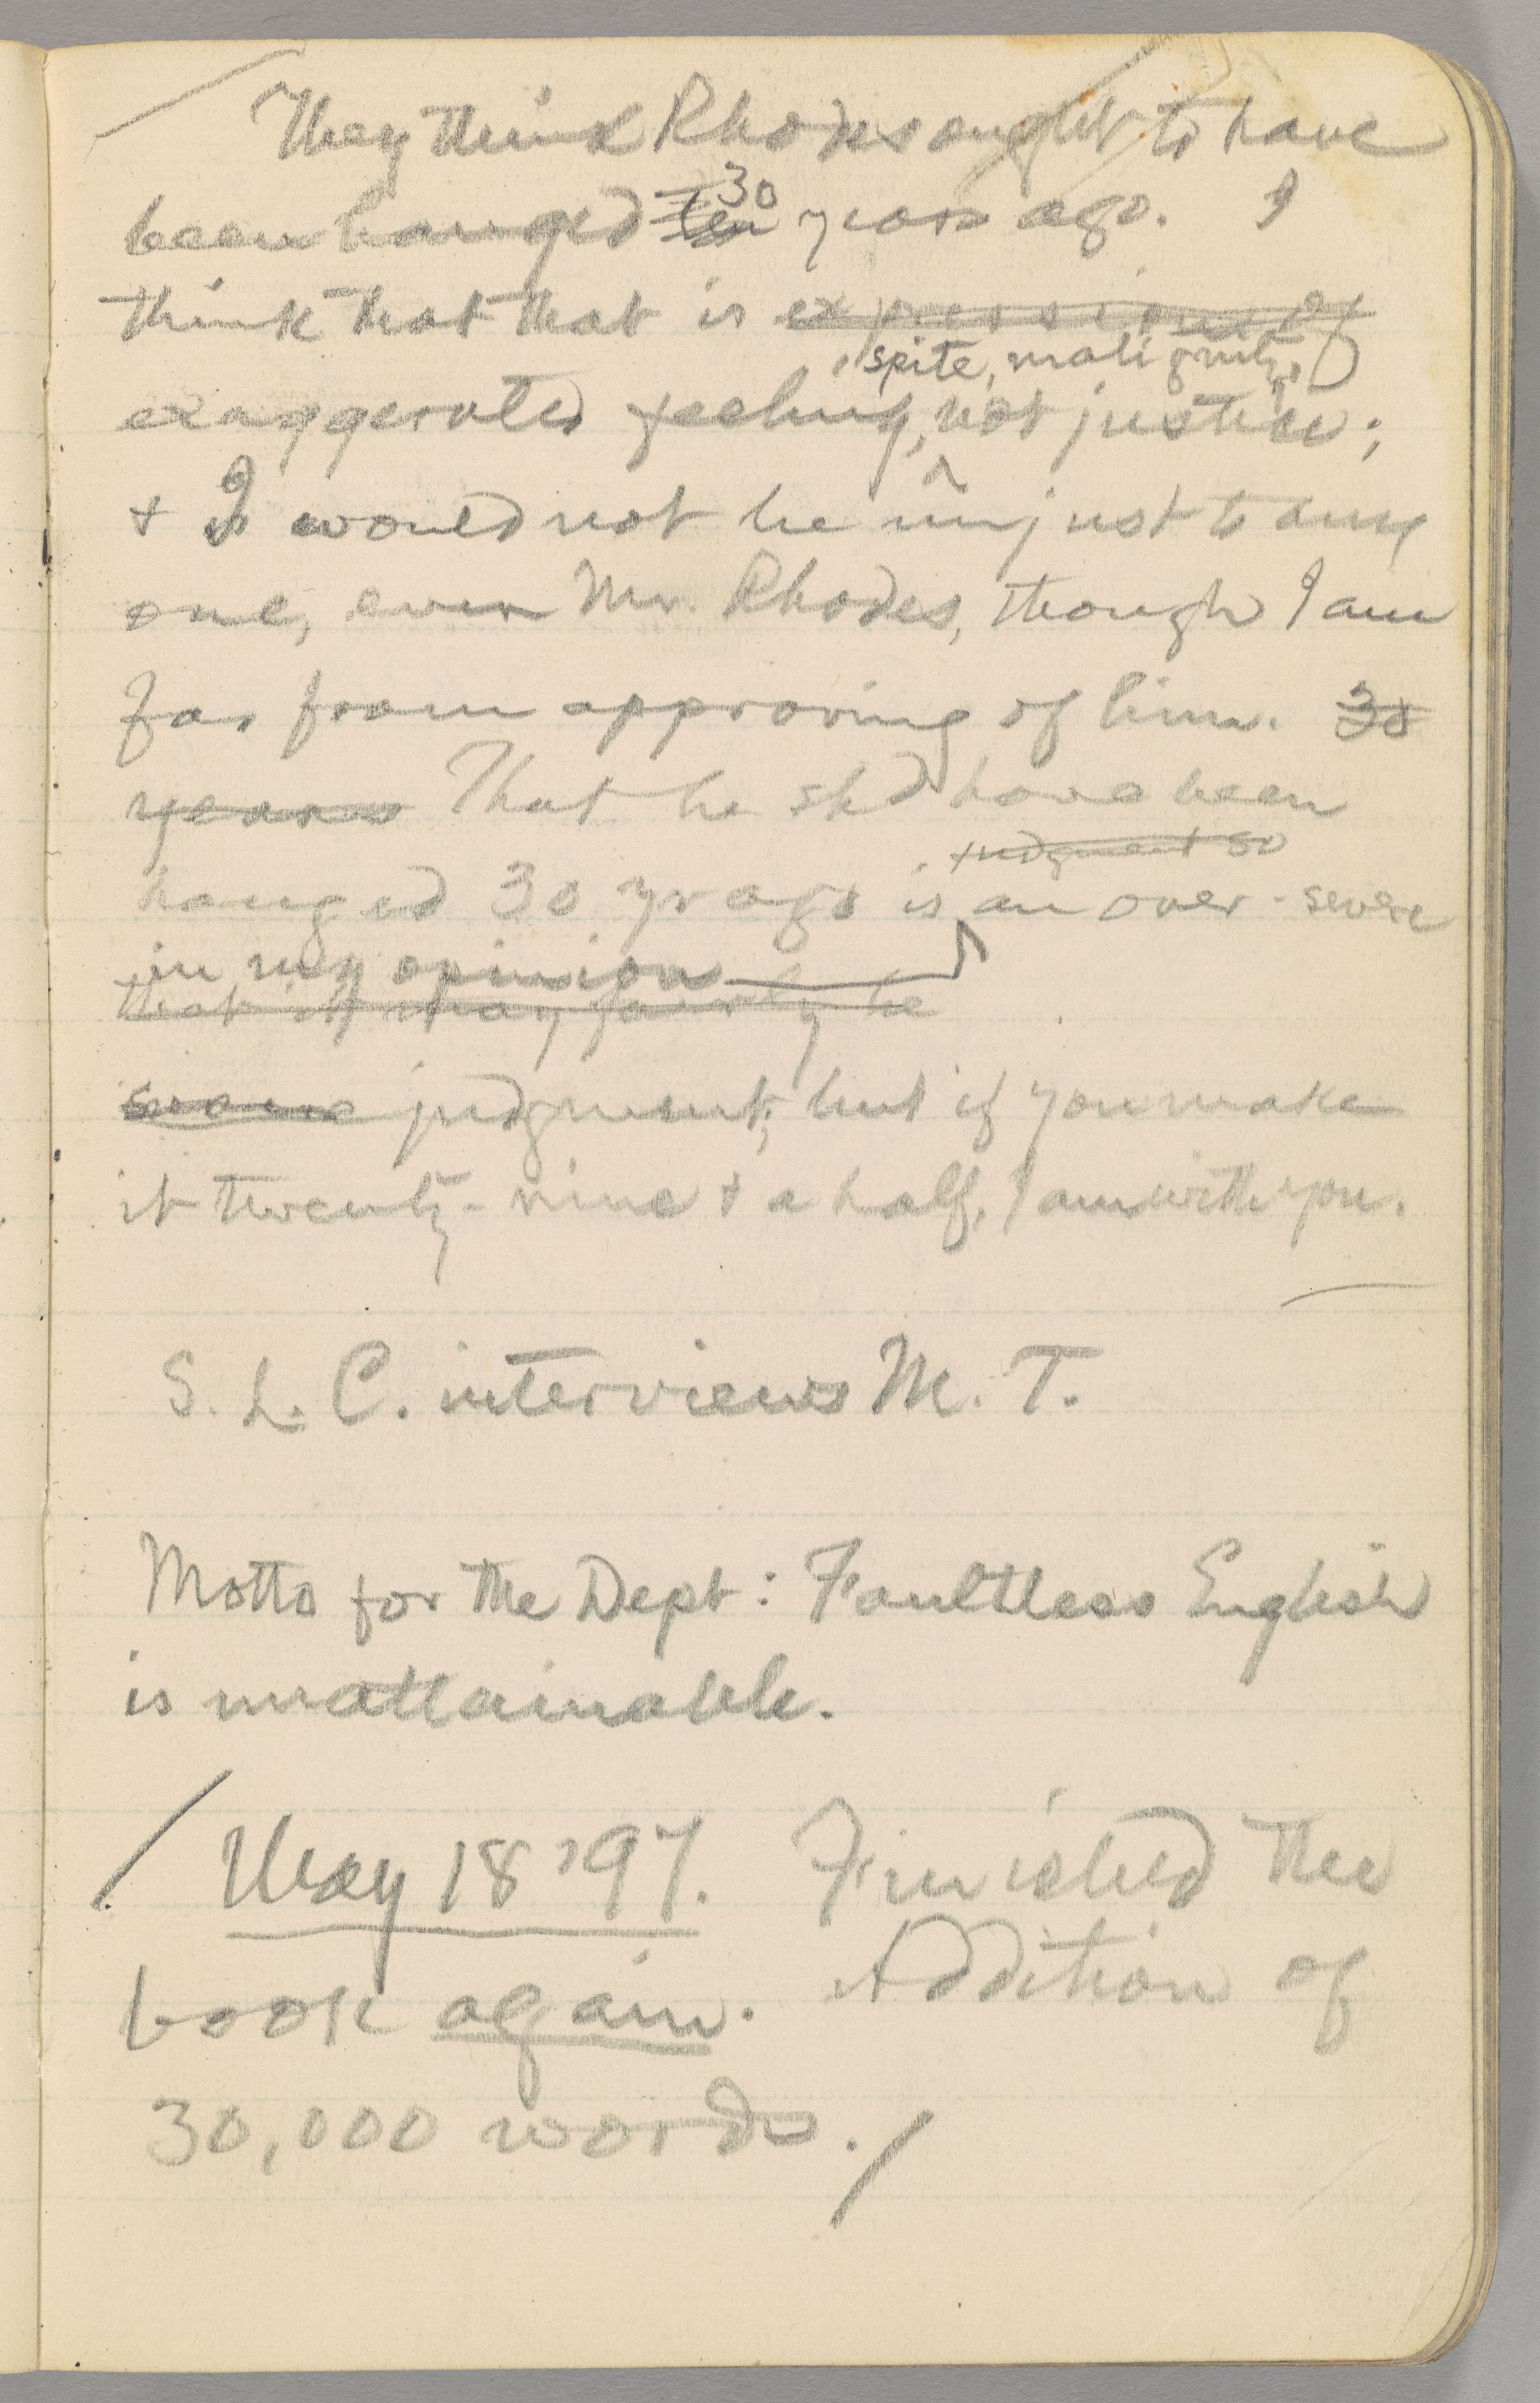 They think Rhodes ought to have
been hanged ten 30 years ago. I
think that that is expressions of
spite, malignity,
exaggerated feeling, not justice;
+ I would not be unjust to any
one, even Mr. Rhodes, though I am
far from approving of him. 30
years That he shd have been
judgment so
hanged 30 yr ago is an over-severe
in my opinion
that it may fairly be
severe judgment; but if you make
it twenty-nine + a half, I am with you.
S. L. C. interviews M. T.
Motto for the Dept: Faultless English
is unattainable.
May 18 '97. Finished the
book again. Addition of
30,000 words.